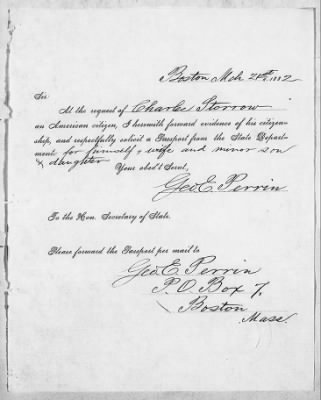 Boston Mch 21st 1882
Sir
At the request of Charles Storrow
an American citizen, I herewith forward evidence of his citizen-
ship, and respectfully solicit a Passport from the State Depart-
ment for himself, wife and minor son
& daughter
Your obed't Servt,
Geo E. Perrin
To the Hon. Secretary of State.
Please forward the Passport per mail to
Geo. E. Perrin
P.O. Box 7,
Boston
Mass.